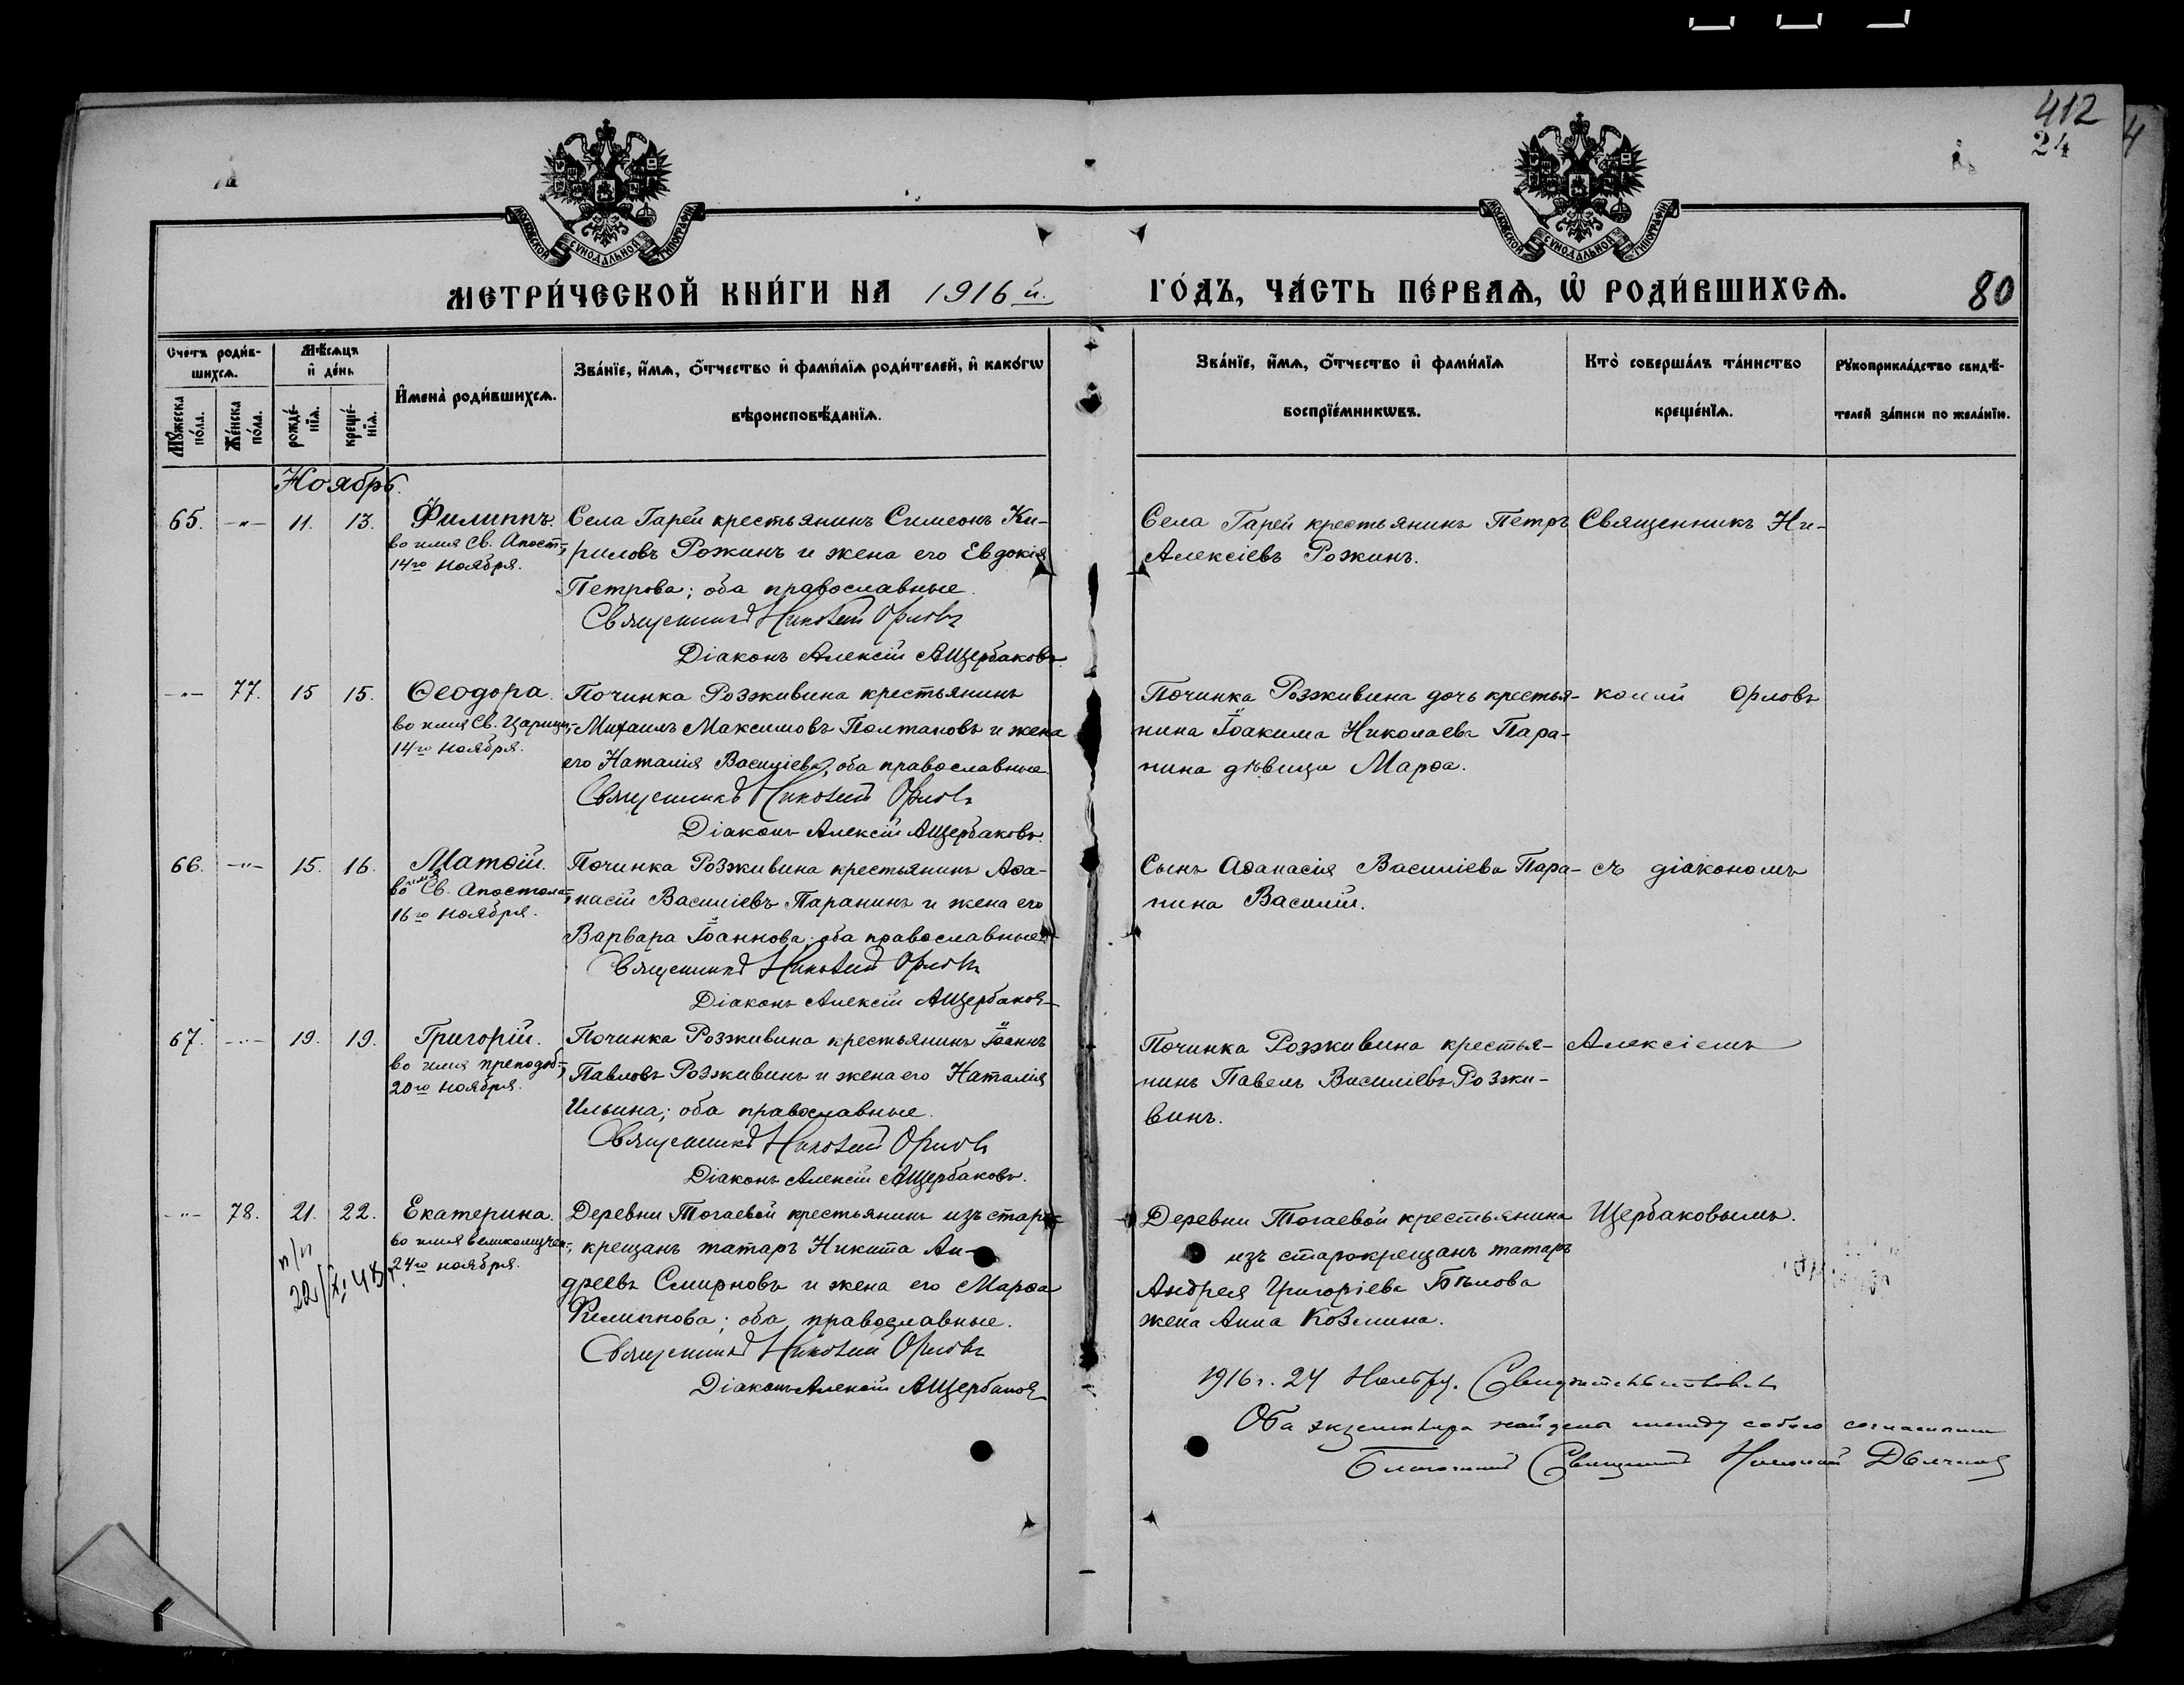 412
24
4
МОСКОВСКОЙ СѴНОДАЛЬНОЙ ТИПОГРАФІИ
МОСКОВСКОЙ СѴНОДАЛЬНОЙ ТИПОГРАФІИ
МЕТРИ́ЧЕСКОЙ КНИ́ГИ НА 1916 й. ГО́ДЪ, ЧА́СТЬ ПЕ́РВАѦ, Ѡ҆ РОДИ́ВШИХСѦ. 80
Счетъ роди́в-
шихсѧ.
Мѣ́сѧцъ
и҆ де́нь
И҆мена̀ роди́вшихсѧ.
Зва́нїе, и҆́мѧ, ѻ҆́тчество и҆ фами́лїѧ роди́телей, и҆ како́гѡ
вѣроисповѣ́данїѧ.
Зва́нїе, и҆́мѧ, ѻ҆́тчество и҆ фами́лїѧ
воспрїе́мникѡвъ.
Кто̀ соверша́лъ та́инство
креще́нїѧ.
Рꙋкоприкла́дство свидѣ́-
телей за́писи по жела́нїю.
Мꙋ́жеска
по́ла.
Же́нска
по́ла.
рожде́-
нїѧ.
креще́-
нїѧ.
Ноябрь.
65. -"- 11. 13. Филиппъ.
во имя Св. Апост-,
14го ноября.
Села Гарей крестьянинъ Симеонъ Ки-
риловъ Рожинъ и жена его Евдокія
Петрова; оба православные.
Священникъ Николай Орловъ
Діаконъ Алексій А Щербаковъ
Села Гарей крестьянинъ Петръ
Алексіевъ Рожинъ.
Священникъ Ни-
-"- 77. 15 15. Ѳеодора.
во имя Св. Цариц-,
14го ноября.
Починка Розживина крестьянинъ
Михаилъ Максимовъ Полтановъ и жена
его Наталія Василіева; оба православные.
Священникъ Николай Орловъ
Діаконъ Алексій А Щербаковъ.
Починка Розживина дочь крестья-
нина Іоакима Николаева Пара-
нина дѣвица Марѳа.
колай Орловъ
66. -"- 15. 16. Матѳій.
во имя Св. Апостола-,
16го ноября.
Починка Розживина крестьянинъ Аѳа-
насій Василіевъ Паранинъ и жена его
Варвара Іоаннова; оба православные.
Священникъ Николай Орловъ
Діаконъ Алексій А Щербаковъ
Сынъ Аѳанасія Василіева Пара-
нина Василій.
съ діакономъ
67. -"- 19. 19. Григорій.
во имя преподоб-,
20го ноября.
Починка Розживина крестьянинъ Іоаннъ
Павловъ Розживинъ и жена его Наталія
Ильина; оба православные.
Священникъ Николай Орловъ
Діаконъ Алексій А Щербаковъ.
Починка Розживина крестья-
нинъ Павелъ Василіевъ Розжи-
винъ.
Алексіемъ
-"- 78. 21. 22. Екатерина.
во имя великомучен-,
24го ноября.
Деревни Тогаевой крестьянинъ изъ старо-
крещанъ татаръ Никита Ан-
дреевъ Смирновъ и жена его Марѳа
Филиппова; оба православные.
Священникъ Николай Орловъ
Діаконъ Алексій А Щербаковъ
Деревни Тогаевой крестьянина
изъ старокрещанъ татаръ
Андрея Григоріева Бѣлова
жена Анна Козмина.
Щербаковымъ.
1916 г. 24 Ноября. Свидѣтельствовалъ
Оба экземпляра найдены между собою согласными
Благочинный Священникъ Николай